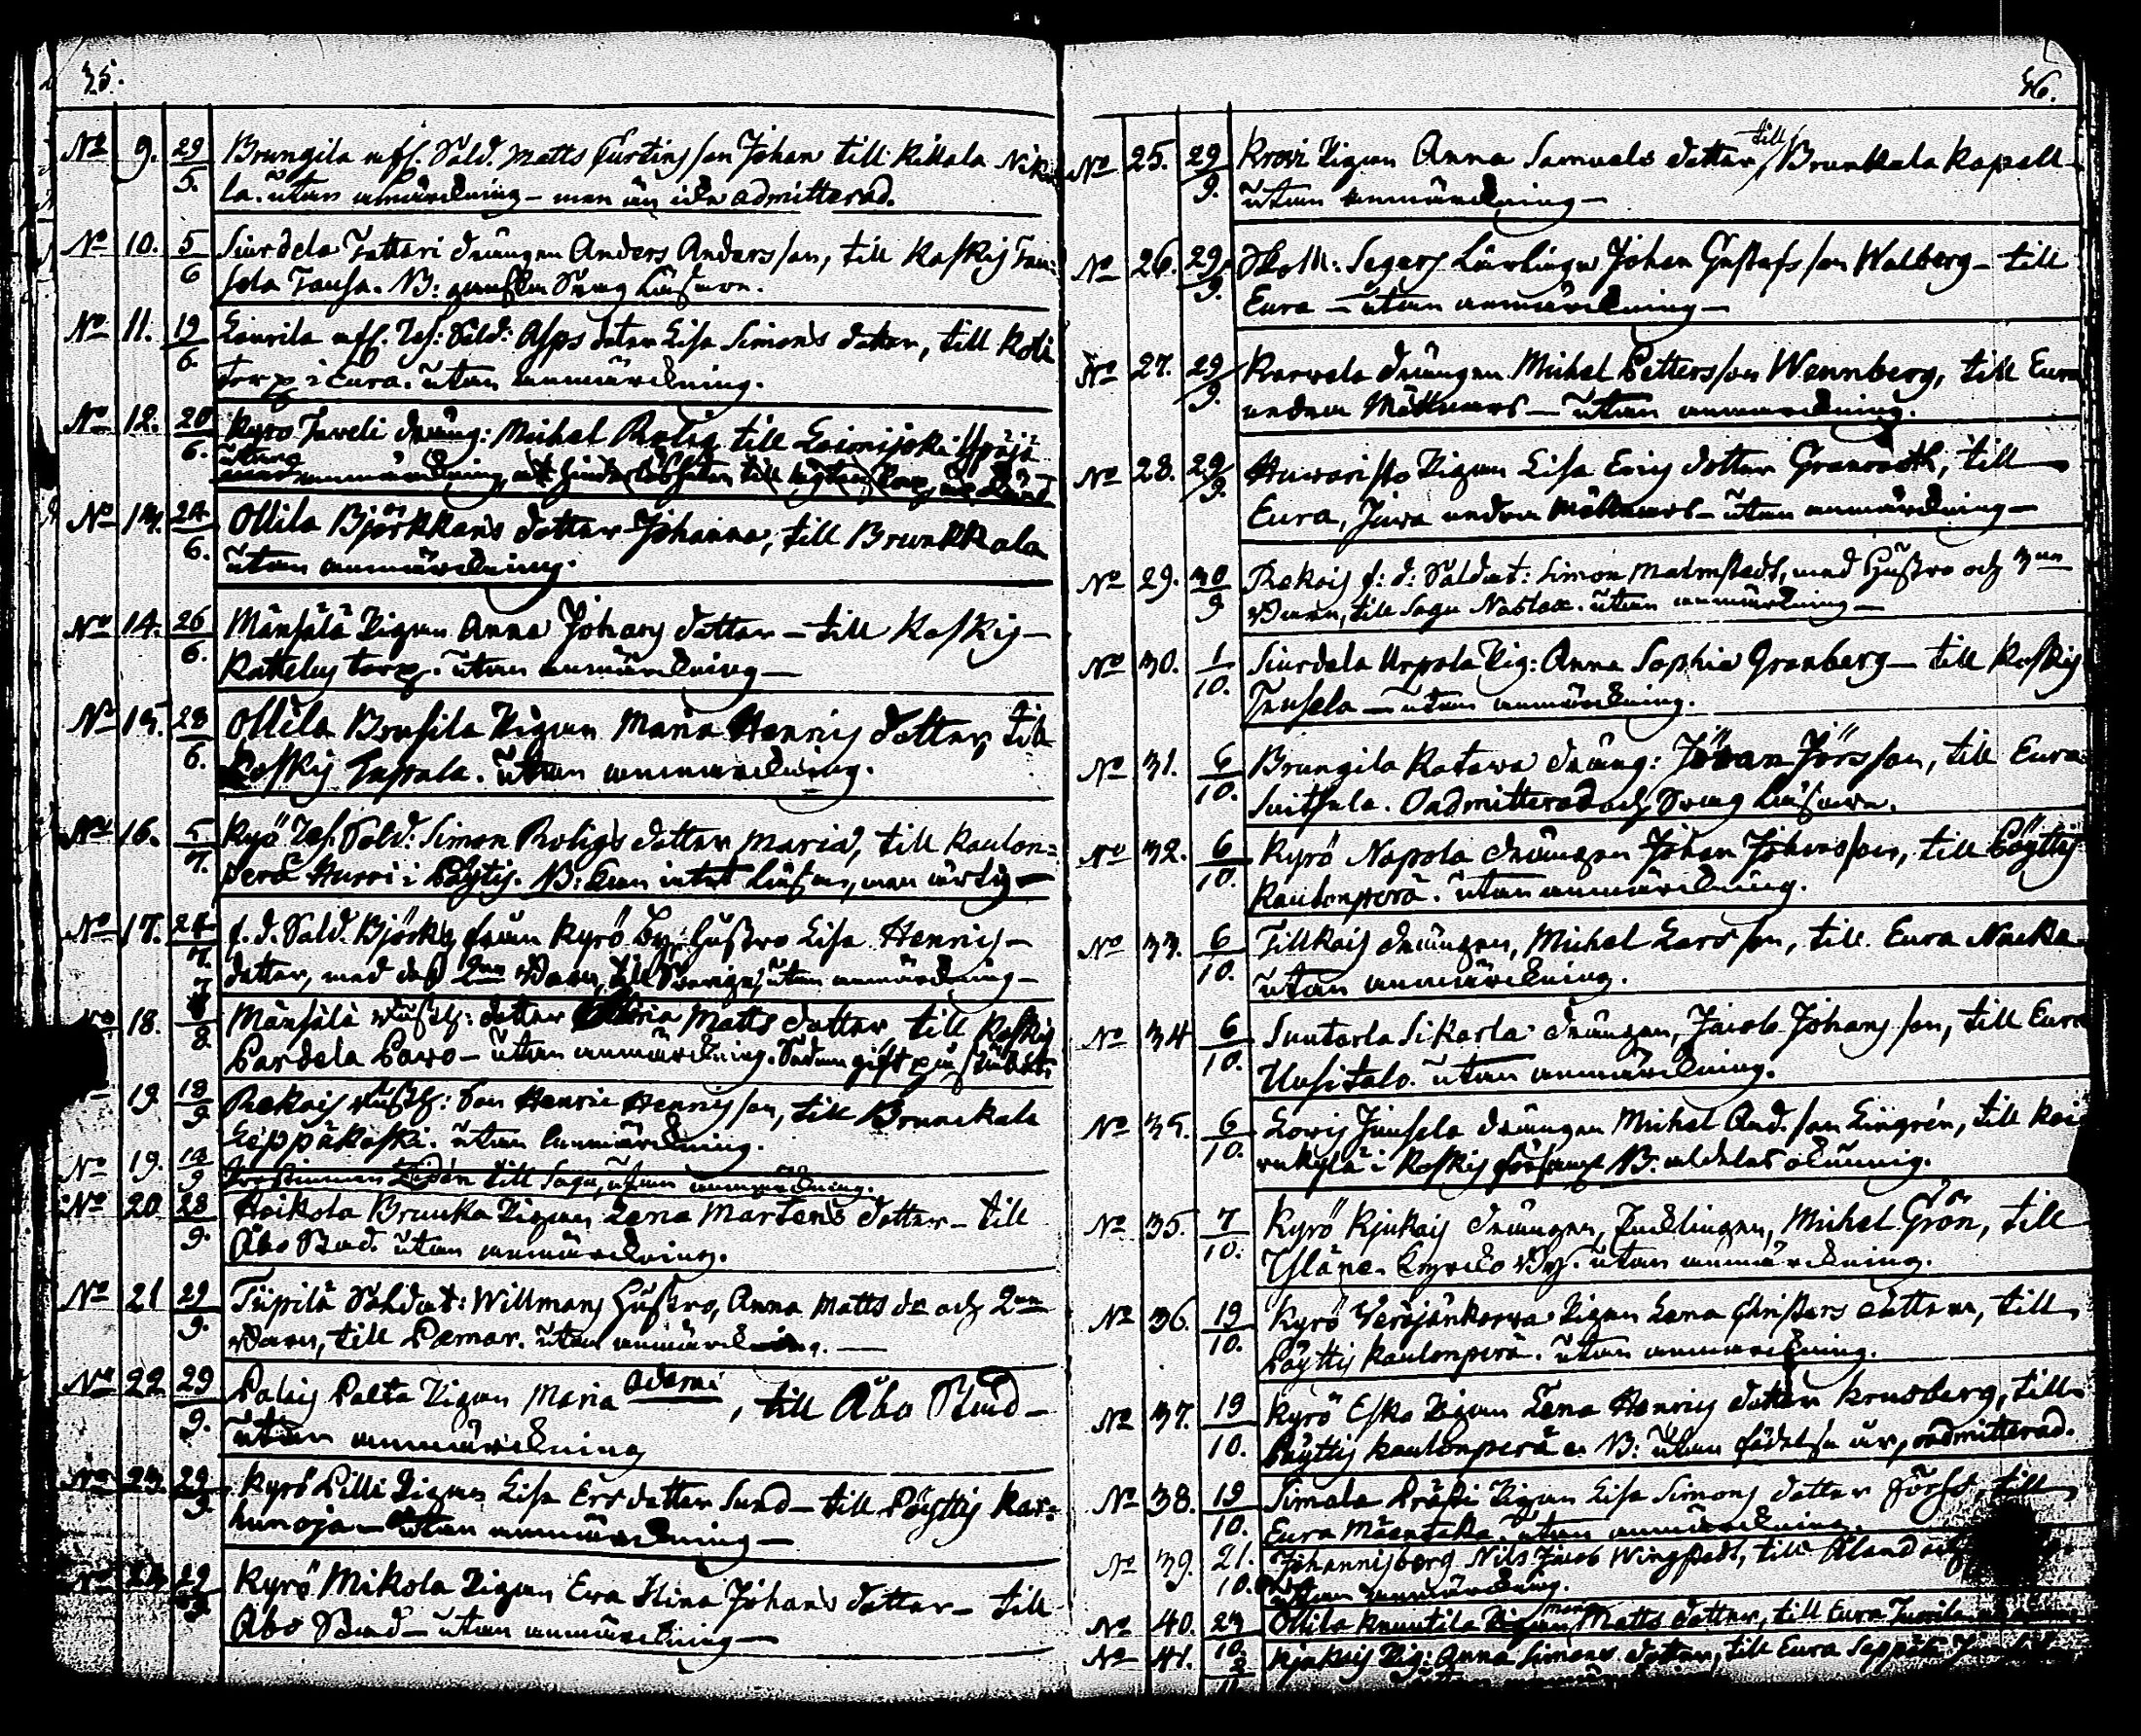 35.
No 9. 29/5. Brungila afsk. Sold. Matts Curtins son Johan till Kikala Niki
la. utan anmärckning - men än icke admitterad.
No 10. 5/6 Siurdela Tattari drängen Anders Anders son, till Koskis Tau
sola Tausa. NB: ganska Svag Läsare.
No 11. 19/6. afsk. Res: Sold: Asps doter Lisa Simons dotter, till Koti
torp i Eura. utan anmärckning.
No 12. 20/6. Kyro Juveli dräng: Michel Rolig till Loimijoki Ypäjä
utan anmärckning
No 13. 24/6. Ollila Björkkans dotter Johanna, till Brunkkala
utan anmärckning.
No 14. 26/6. Mänsälä Pigan Anna Johans dotter - till Koskis -
Kattelus torp. utan anmärckning -
No 15. 28/6. Ollila Brusila Pigan Maria Henrics dotter, till
Koskis Tappala. utan anmarckning.
No 16. 5/7. Kyrö Res. Sold. Simon Roligs dotter Maria, till Kaulan=
perä Hurri i Pöytis. NB: kan intet Läsa, men ärlig -
No 17. 24/7. f. d. Sold. Björks från Kyrö by, Hustro Lisa Henrics -
dotter, med dess 2ne Barn, till Sverige, utan anmärckning -
No 18. 7/8. Mänsälä dotter Maria Matts dotter till Koskis
Pardela Pavo - utan anmärckning. Sedan gift på stället.
19 18/9 Rekois Son Henric Henrics son, till Brunckala
Leppäkoski. utan anmärckning.
No 19. 18/9 till Sagu, utan anmärckning.
No 20 28/9. Heikola Brunka Pigan Lena Martens dotter - till
Åbo Stad. utan anmärckning.
No 21 29/9. Tüpilä Soldat: Willmans Hustro, Anna Matts dr och 2ne
Barn, till Pemar. utan anmärckning. -
No 22 29/9. Palais Palta Pigan Maria Adami, till Åbo Stad -
utan anmärckning
No 23. 29/9 Kyrö Pilli Pigan Lisa Ers dotter Sund - till Pöyttis Kar=
hunoja - utan anmärckning -
29/9 Kyrö Mikola Pigan Eva Stina Johans dotter - till
Åbo Stad - utan anmärckning -
36.
No 25. 29/9. Krovi Pigan Anna Samuels dotter, till Brunkkala Kapell -
utan anmärckning -
No 26. 29/9. Skoll: Segers Lärlinge Johan Gustafs son Walberg - till
Eura - utan anmärckning -
No 27. 29/9. Karvela drängen Michel Petters son Wennberg, till Eura
nedra Mällmars - utan anmarckning.
No 28. 29/9. Huvaristo Pigan Lisa Erics dotter Granroth, till
Eura, Juva nedra Mällmars - utan anmärckning -
No 29. 30/9 Rekois f: d: Soldat: Simon Malmstedt, med Hustro och 3ne
Barn, till Sagu. utan anmärckning -
No 30. 1/10. Siurdela Urpola Pig: Anna Sophia Granberg - till Koskis
Tausela - utan anmärckning.
No 31. 6/10. Brungila Katawa dräng: Jöran Jörsson, till Eura
Suitsula. Oadmitterad och Svag Läsare.
No 32. 6/10. Kyrö Napola drängen Johan Johansson, till Pöyttis
Kaulanperä. utan anmärckning.
No 33. 6/10. Tillkais drängen, Michel Lars son, till Eura Nucka
utan anmärckning.
No 34 6/10. Suntarla Sikarla drängen, Jacob Johans son, till Eura
Uusitalo. utan anmärckning.
No 35. 6/10. Lovis Juusela drängen Michel And. son Lingrén, till Koi
vukylä i Koskis NB. aldeles okunnig.
No 35. 7/10. Kyrö Kjukois drängen, Michel Grön, till
Yläne. By. utan anmärckning.
No 36. 19/10. Kyrö Veräjänkorva Pigan Lena Christers dotter, till
Pöyttis Kaulanperä. utan anmärckning.
No 37. 19/10. Kyrö Esko Pigan Lena Henrics dotter Krusberg, till
Pöyttis Kaulanperä. NB: utan födelse år, oadmitterad.
No 38. 19/10. Simala Prästi Pigan Lisa Simons dotter Förss, till
Eura Mäentaka. utan anmärckning.
No 39. 21./10. Johannisberg Nils Jacob Wingstedt, till Åland
utan anmärckning.
No 40. 24/10. Ollila Knuutila Pigan Maria Matts dotter, till Eura
No 41. 2/11 Kjukois Pig: Anna Simons dotter, till Eura Seppälä